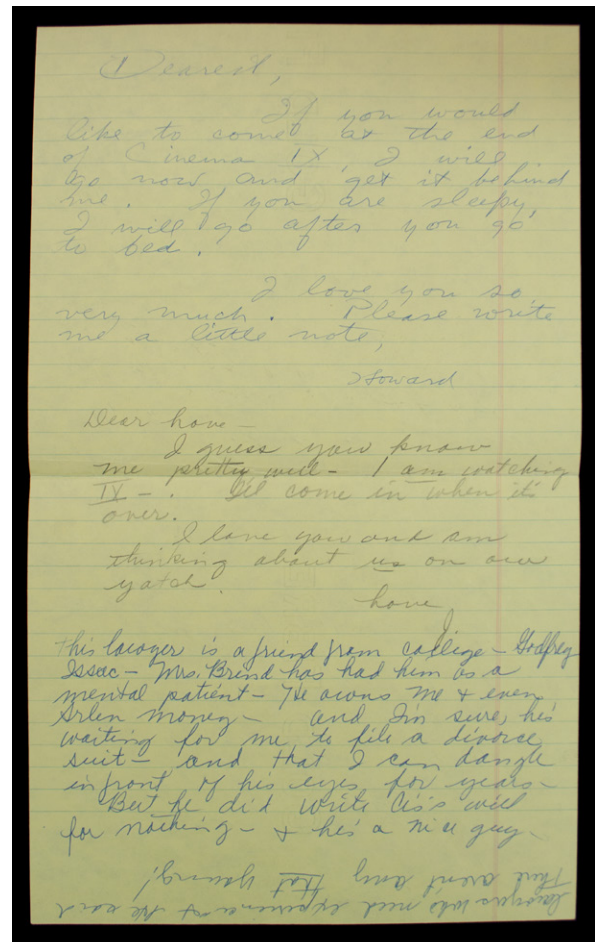 Dearest,
If you would
like to come at the end
of Cinema IX, I will
go now and get it behind
me. If you are sleepy,
I will go after you go
to bed.
I love you so
very much. Please write
me a little note,
Howard
Dear love—
I guess you know
me pretty well— I am watching
IX—. I'll come in when it's
over.
I love you and am
thinking about us on our
yatch.
Love
J
This lawyer is a friend from college— Godfrey
Issac— Mrs. Brind has had him as a
mental patient— He owns me & even
Arlen money— and I'm sure, he's
waiting for me to file a divorce
suit— and that I can dangle
in front of his eyes for years—
But he did write Cis's will
for nothing— & he's a nice guy—
lawyers who need experience at the card
There aren't any that young!